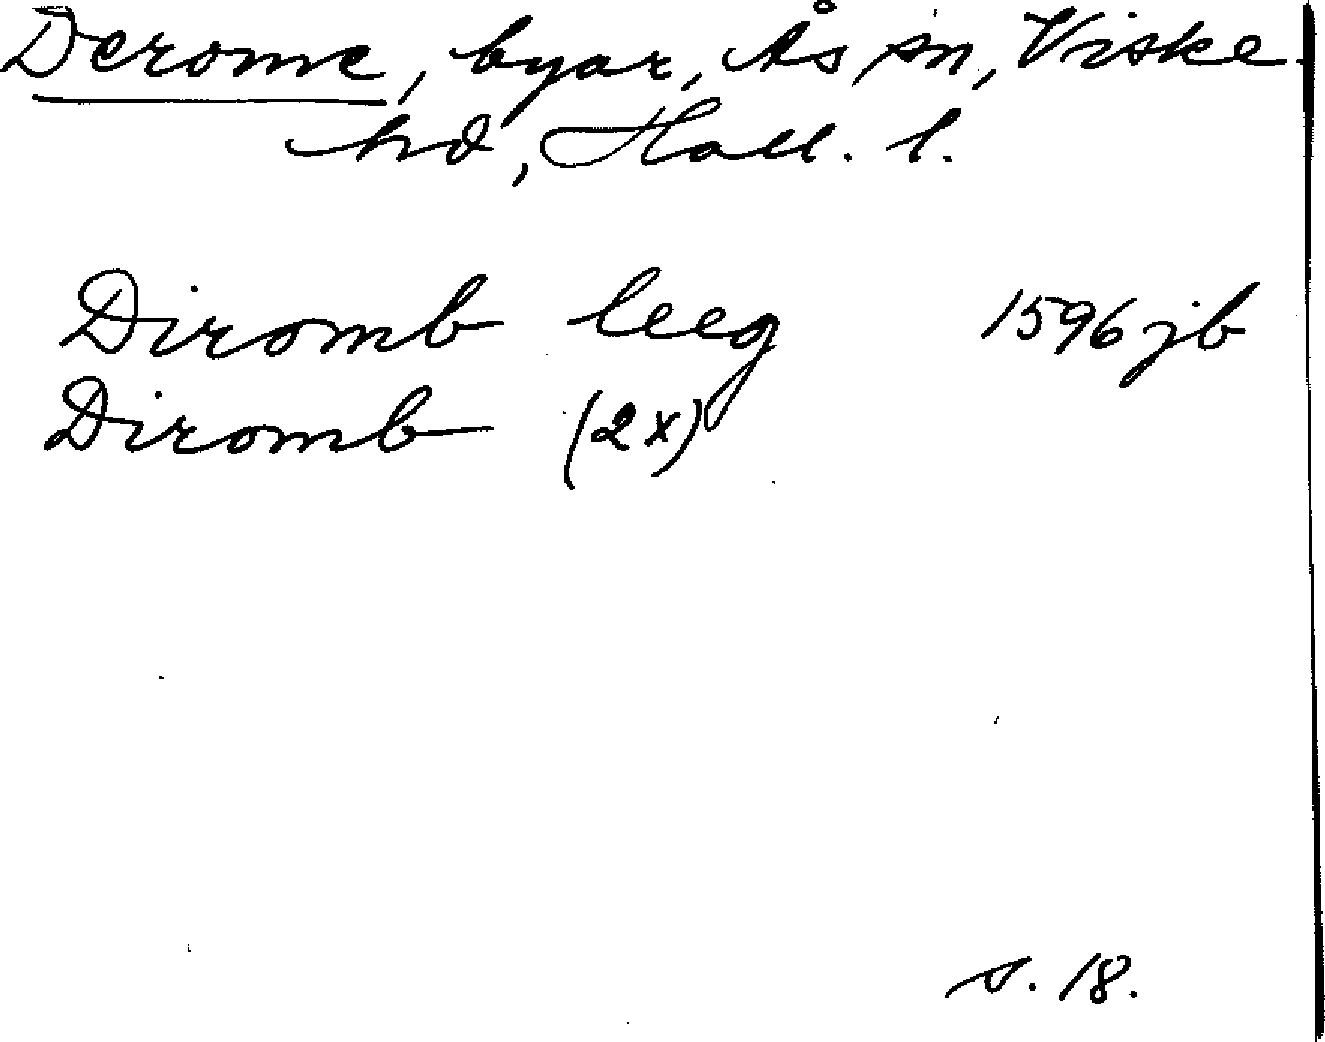 Derome, byar, Ås sn, Viske
hd, Hall. l.
Diromb leeg 1596 jb
Diromb (2x)
s. 18.